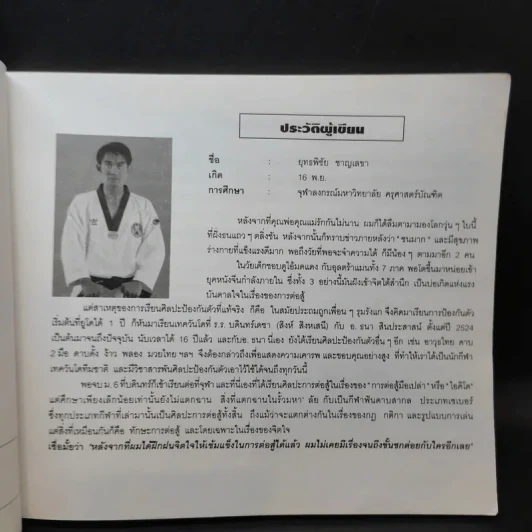 ประวัติผู้เขียน
ชื่อ : ยุทธพิชัย ชาญเลขา
เกิด : 16 พ.ย.
การศึกษา : จุฬาลงกรณ์มหาวิทยาลัย ครุศาสตร์บัณฑิต
หลังจากที่คุณพ่อคุณแม่รักกันไม่นาน ผมก็ได้ลืมตามามองโลกวุ่น ๆ ใบนี้
ที่ฝั่งธนแถว ๆ ตลิ่งชัน หลังจากนั้นก็ทราบข่าวภายหลังว่า "ซนมาก" และมีสุขภาพ
ร่างกายที่แข็งแรงดีมาก พอถึงวัยที่พอจะจำความได้ ก็มีน้อง ๆ ตามมาอีก 2 คน
ในวัยเด็กชอบดูไอ้มดแดง กับอุลตร้าแมนทั้ง 7 ภาค พอโตขึ้นมาหน่อยเข้า
ยุคหนังจีนกำลังภายใน ซึ่งทั้ง 3 อย่างนี้มันฝังเข้าจิตใต้สำนึก เป็นบ่อเกิดแห่งแรง
บันดาลใจในเรื่องของการต่อสู้
แต่สาเหตุของการเรียนศิลปะป้องกันตัวที่แท้จริง ก็คือ ในสมัยประถมถูกเพื่อน ๆ รุมรังแก จึงคิดมาเรียนการป้องกันตัว
เริ่มต้นที่ยูโดได้ 1 ปี ก็หันมาเรียนเทควันโดที่ ร.ร. บดินทร์เดชา (สิงห์ สิงหเสนี) กับ อ. ธนา สินประสาสน์ ตั้งแต่ปี 2524
เป็นต้นมาจนถึงปัจจุบัน นับเวลาได้ 16 ปีแล้ว และกับอ. ธนา นี่เอง ยังได้เรียนศิลปะป้องกันตัวอื่น ๆ อีก เช่น อาวุธไทย ดาบ
2 มือ ดาบดั้ง ง้าว พลอง มวยไทย ฯลฯ จึงต้องกล่าวถึงเพื่อแสดงความเคารพ และขอบคุณอย่างสูง ที่ทำให้เราได้เป็นนักกีฬา
เทควันโดทีมชาติ และมีวิชาสารพันศิลปะป้องกันตัวเอาไว้ใช้ได้จนถึงทุกวันนี้
พอจบ ม. 6 ที่บดินทร์ก็เข้าเรียนต่อที่จุฬา และที่นี่เองที่ได้เรียนศิลปะการต่อสู้ในเรื่องของ "การต่อสู้มือเปล่า" หรือ "ไอคิโด"
แต่ศึกษาเพียงเล็กน้อยเท่านั้นยังไม่แตกฉาน สิ่งที่แตกฉานในรั้วมหา'ลัย กับเป็นกีฬาฟันดาบสากล ประเภทเซเบอร์
ซึ่งทุกประเภทกีฬาที่เล่ามานั้นเป็นศิลปะการต่อสู้ทั้งสิ้น ถึงแม้ว่าจะแตกต่างกันในเรื่องของกฎ กติกา และรูปแบบการเล่น
แต่สิ่งที่เหมือนกันก็คือ ทักษะการต่อสู้ และโดยเฉพาะในเรื่องของจิตใจ
เชื่อมั้ยว่า "หลังจากที่ผมได้ฝึกฝนจิตใจให้เข้มแข็งในการต่อสู้ได้แล้ว ผมไม่เคยมีเรื่องจนถึงขั้นชกต่อยกับใครอีกเลย"